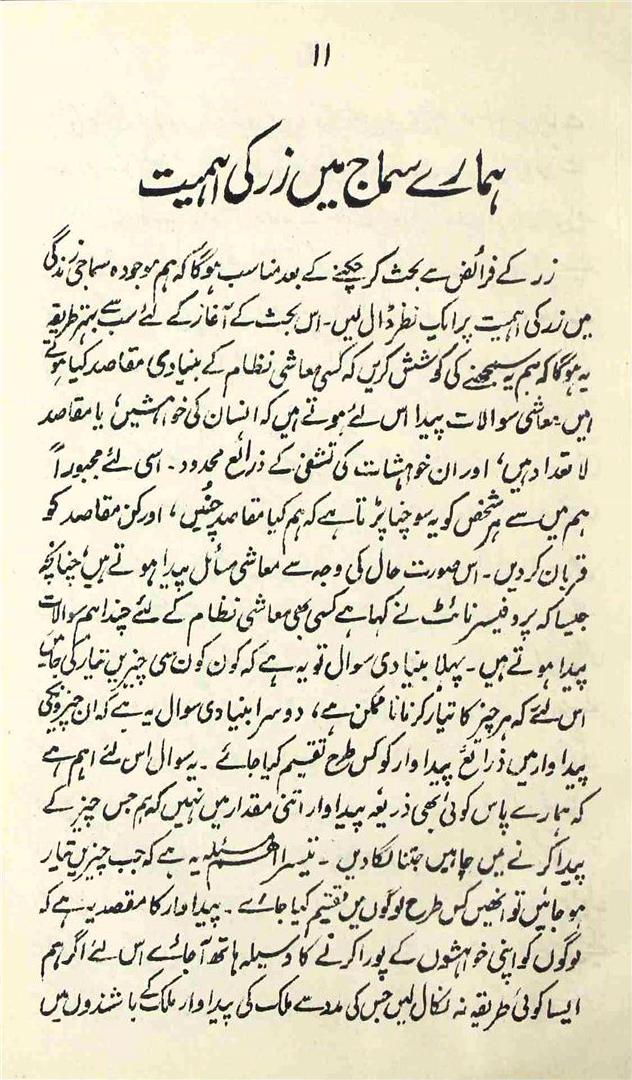 ۱۱
ہمارے سماج میں زر کی اہمیت
زر کے فرائض سے بحث کر چکنے کے بعد مناسب ہو گا کہ ہم موجودہ سماجی زندگی
میں زر کی اہمیت پر ایک نظر ڈال لیں۔ اس بحث کے آغاز کے لئے سب سے بہتر طریقہ
یہ ہو گا کہ ہم یہ سمجھنے کی کوشش کریں کہ کسی معاشی نظام کے بنیادی مقاصد کیا ہوتے
ہیں۔ معاشی سوالات پیدا اس لئے ہوتے ہیں کہ انسان کی خواہشیں، یا مقاصد
لا تعداد ہیں، اور ان خواہشات کی تشفی کے ذرائع محدود۔ اسی لئے مجبوراً
ہم میں سے ہر شخص کو یہ سوچنا پڑتا ہے کہ ہم کیا مقاصد چنیں، اور کن مقاصد کو
قربان کر دیں۔ اس صورت حال کی وجہ سے معاشی مسائل پیدا ہوتے ہیں، چنانچہ
جیسا کہ پروفیسر نائٹ نے کہا ہے کسی بھی معاشی نظام کے لئے چند اہم سوالات
پیدا ہوتے ہیں۔ پہلا بنیادی سوال تو یہ ہے کہ کون کون سی چیزیں تیار کی جائیں
اس لئے کہ ہر چیز کا تیار کرنا نا ممکن ہے، دوسرا بنیادی سوال یہ ہے کہ ان چیزونکی
پیداوار میں ذرائع پیداوار کو کس طرح تقسیم کیا جائے۔ یہ سوال اس لئے اہم ہے
کہ ہمارے پاس کوئی بھی ذریعہ پیداوار اتنی مقدار میں نہیں کہ ہم جس چیز کے
پیدا کرنے میں چاہیں جتنا لگا دیں۔ تیسرا اہم مسئلہ یہ ہے کہ جب چیزیں تیار
ہو جائیں تو انھیں کس طرح لوگوں میں تقسیم کیا جائے۔ پیداوار کا مقصد یہ ہے کہ
لوگوں کو اپنی خواہشوں کے پورا کرنے کا وسیلہ ہاتھ آ جائے اس لئے اگر ہم
ایسا کوئی طریقہ نہ نکال لیں جس کی مدد سے ملک کی پیداوار ملک کے باشندوں میں